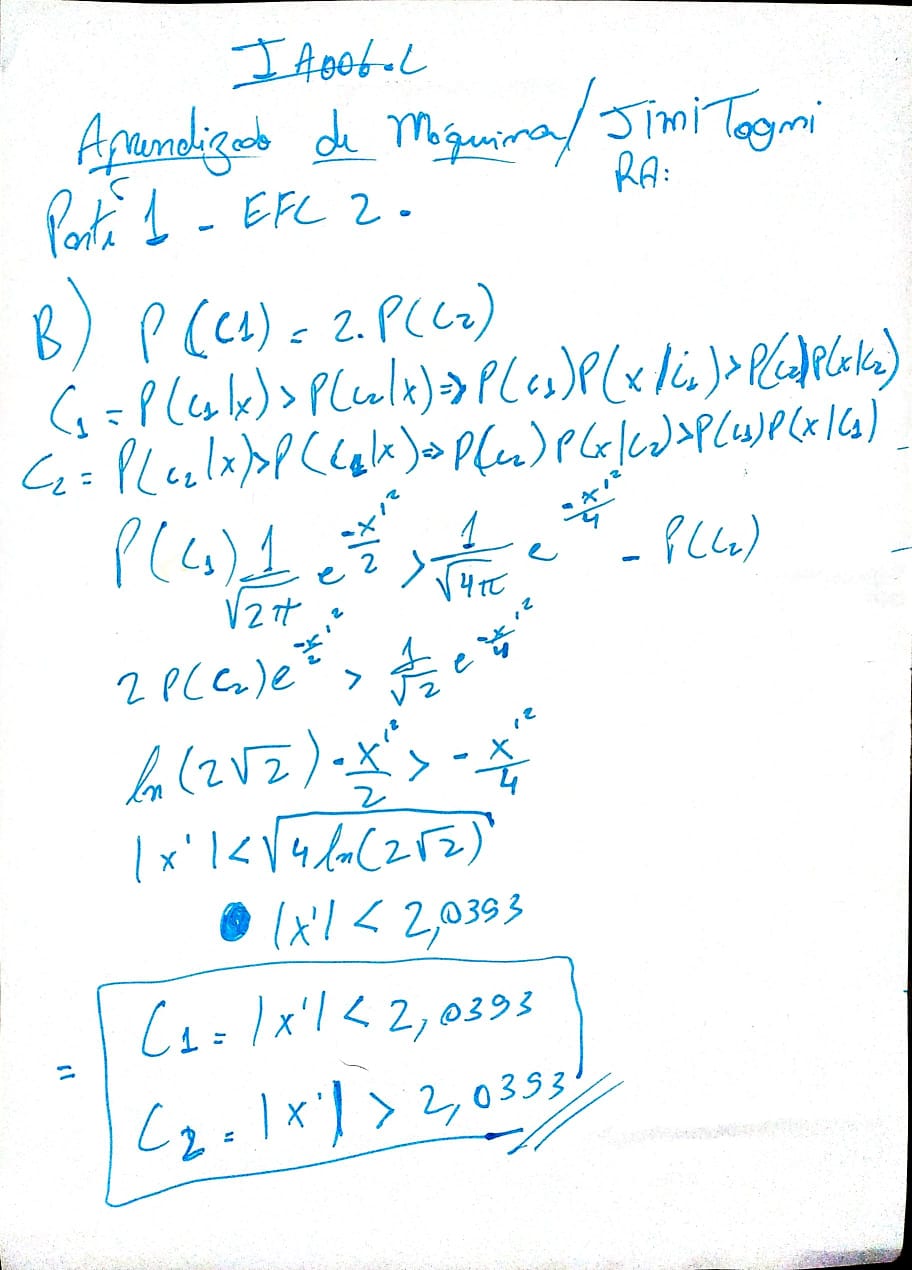 IA006-C
Aprendizado de Máquina / Jimi Togni
RA:
Parte 1 - EFC 2.
B) P(C1) = 2.P(C2)
C1 = P(C1|x) > P(C2|x) => P(C1)P(x/C1) > P(C2)P(x|C2)
C2 = P(C2|x) > P(C1|x) => P(C2)P(x|C2) > P(C1)P(x|C1)
P(C1) 1/√2π e^(-x'²/2) > 1/√4π e^(-x'²/4) - P(C2)
2P(C2)e^(-x'²/2) > 1/√2 e^(-x'²/4)
ln(2√2) - x'²/2 > - x'²/4
|x'| < √4ln(2√2)
|x'| < 2,0393
C1 = |x'| < 2,0393
= C2 = |x'| > 2,0393